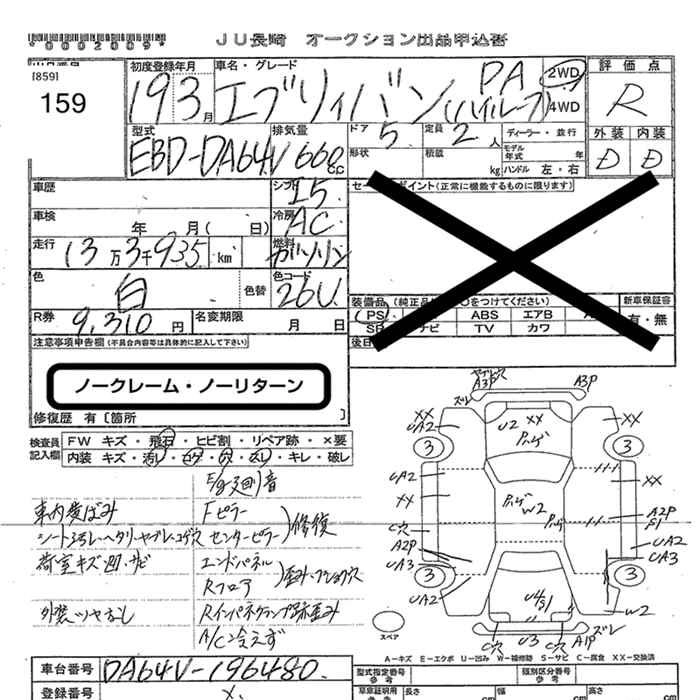 *0002009*
JU長崎 オークション出品申込書
[859]
159
初度登録年月 193月
車名・グレード エブリィバン PA (ハイルーフ)
2WD 4WD
評価点 R
外装 内装
D D
型式 EBD-DA64V
排気量 660cc
ドア 5
定員 2人
形状
積載 kg
ディーラー・並行
モデル年式 年
ハンドル 左・右
車歴
シフト I5
車検 年 月(日)
冷房 AC
走行 13万3千935 km
燃料 ガソリン
色 白 色替
色コード 26U
R券 9,310円
名変期限 月 日
セールスポイント(正常に機能するものに限ります)
新車保証書 有・無
PS ABS エアB
SR ナビ TV カワ
注意事項申告欄(不具合内容等は具体的に記入して下さい)
ノークレーム・ノーリターン
修復歴 有〔箇所 〕
検査員記入欄
FW キズ・飛石・ヒビ割・リペア跡・×要
内装 キズ・汚レ・コゲ・穴・スレ・キレ・破レ
E/g廻リ音
車内黄ばみ
Fピラー
センターピラー 修復
荷室キズ凹サビ
エンドパネル
Rフロア
外装ツヤなし
Rインパネクランプ跡歪み
A/C冷えず
ズレ A3P A3P
XX UA2 U2 XX XX
3 3
UA2 XX W2 XX
C穴 A2P UA3
A2P S1 UA2 UA3
3 3
UA2 U4 S1 W2
C穴 U3 C穴 A1P ズレ
スペア
A-キズ E-エクボ U-凹み W-補修跡 S-サビ C-腐食 XX-交換済
車台番号 DA64V-196480
登録番号
型式指定番号 参考
類別区分番号 参考
長さ 幅 高さ